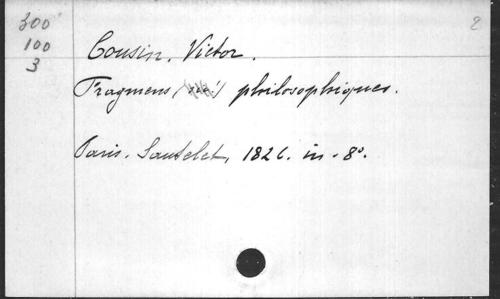 300
100
3
2
Cousin, Victor.
Fragmens philosophiques.
Paris. Sautelet, 1826. in-8°.